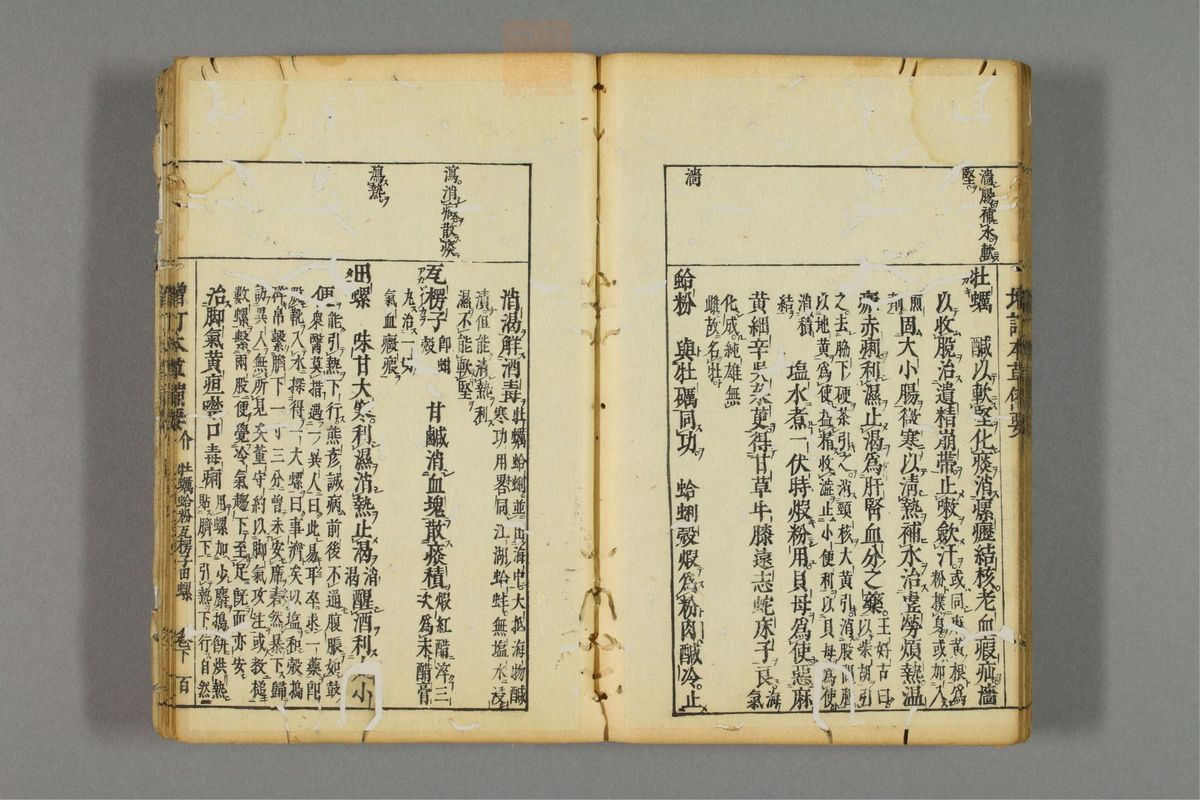 濇腸補水軟
堅
濇
增訂本草備要
牡蠣 鹹以軟堅化痰消瘰癧結核老血瘕疝濇
以收脫治遺精崩帶止嗽斂汗或同麻黃根為粉撲身或加入煎劑
固大小腸微寒以清熱補水治虛勞煩熱溫
瘧赤痢利濕止渴為肝腎血分之藥王好古曰以柴胡引
之去脇下硬茶引之消頸核大黃引消股間腫
以地黃為使益精收澁止小便利以貝母為使
消積結 塩水煮一伏時煆粉用貝母為使惡麻
黃細辛吳茱萸得甘草牛膝遠志蛇床子良海氣
化成純雄無
雌故名牡
蛤粉 與牡蠣同功 蛤蜊殼煆為粉肉鹹冷止
瀉消癭散痰
瀉熱
消渴解酒毒牡蠣蛤蜊並出海中大抵海物鹹
寒功用畧同江湖蛤蚌無塩水浸
漬但能清熱利
濕不能軟堅
瓦楞子即蚶殼 甘鹹消血塊散痰積煆紅醋淬三
次為末醋膏
丸治一切
氣血癥瘕
田螺 味甘大寒利濕清熱止渴消渴醒酒利大小
便能引熱下行熊彥誠病前後不通腹脹如鼓
眾醫莫措遇一異人曰此易耳卒求一藥即
脫靴入水探得一大螺曰事濟矣以塩和殼搗
碎帛繫臍下一寸三分曾未安席砉然暴下歸
訪異人無所見矣董守約以脚氣攻注或教搥
數螺繫兩股便覺冷氣趨下至足既而亦安
治脚氣黃疸噤口毒痢用螺加少麝搗餅烘熱
貼臍下引熱下行自然
增訂本草備要 介 牡蠣蛤粉瓦楞子田螺